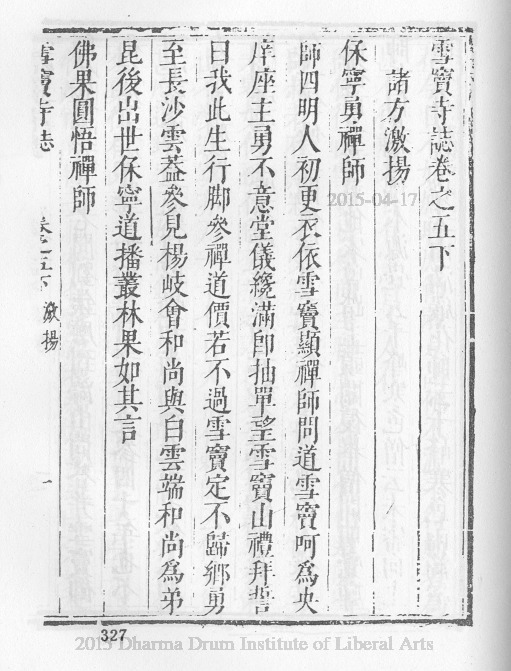 雪竇寺誌卷之五下
諸方激揚
保寧勇禪師
師四明人初更衣依雪竇顯禪師問道雪竇呵為央
庠座主勇不意堂儀纔滿即抽單望雪竇山禮拜誓
曰我此生行脚參禪道價若不過雪竇定不歸鄉勇
至長沙雲葢參見楊岐會和尚與白雲端和尚為弟
昆後出世保寧道播叢林果如其言
佛果圓悟禪師
雪竇寺誌 卷之五下 激揚 一
2015-04-17
327
2015 Dharma Drum Institute of Liberal Arts